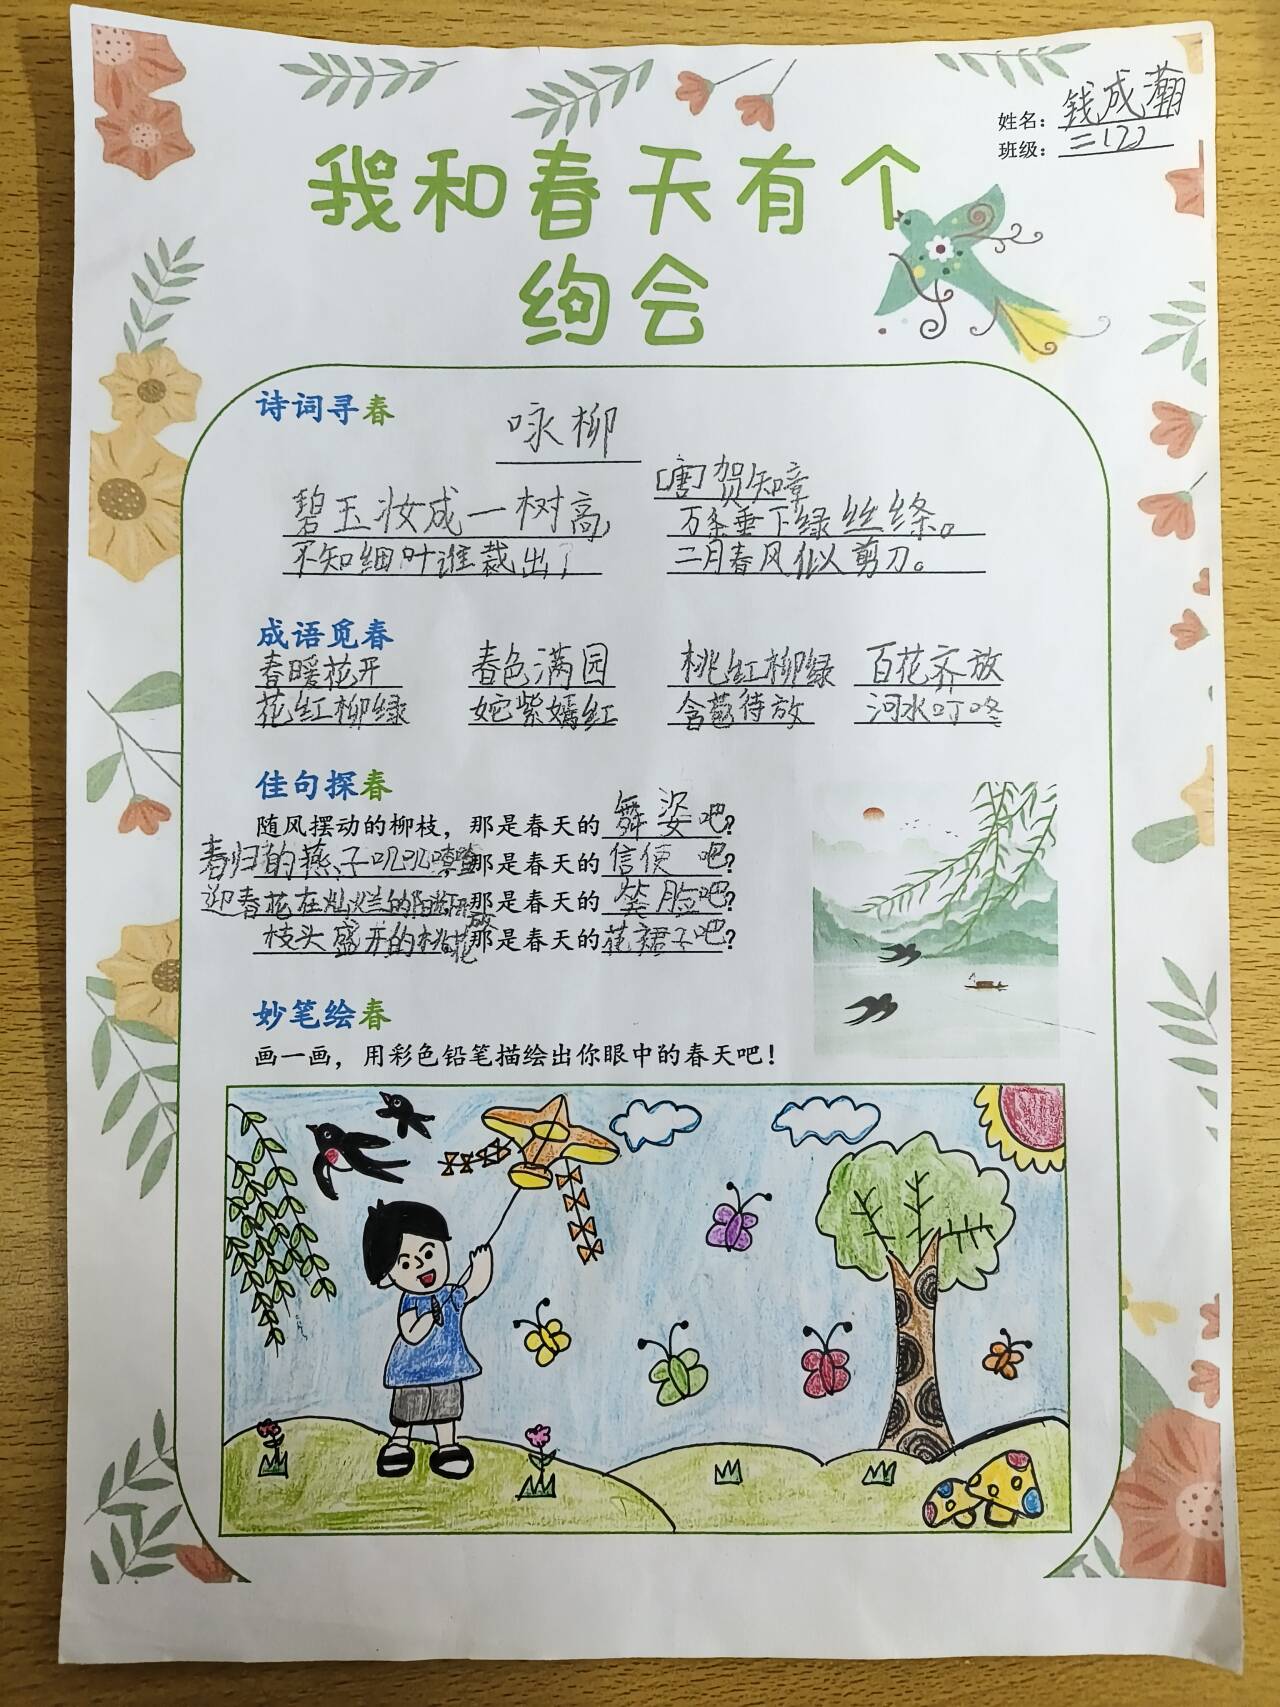 姓名：钱成瀚
班级：二（2）
我和春天有个
绚会
诗词寻春
咏柳
[唐]贺知章
碧玉妆成一树高，万条垂下绿丝绦。
不知细叶谁裁出，二月春风似剪刀。
成语觅春
春暖花开 春色满园 桃红柳绿 百花齐放
花红柳绿 姹紫嫣红 含苞待放 河水叮咚
佳句探春
随风摆动的柳枝，那是春天的舞姿吧？
春归的燕子叽叽喳喳那是春天的信使吧？
迎春花在灿烂的阳光下开放那是春天的笑脸吧？
枝头盛开的桃花那是春天的花裙子吧？
妙笔绘春
画一画，用彩色铅笔描绘出你眼中的春天吧！